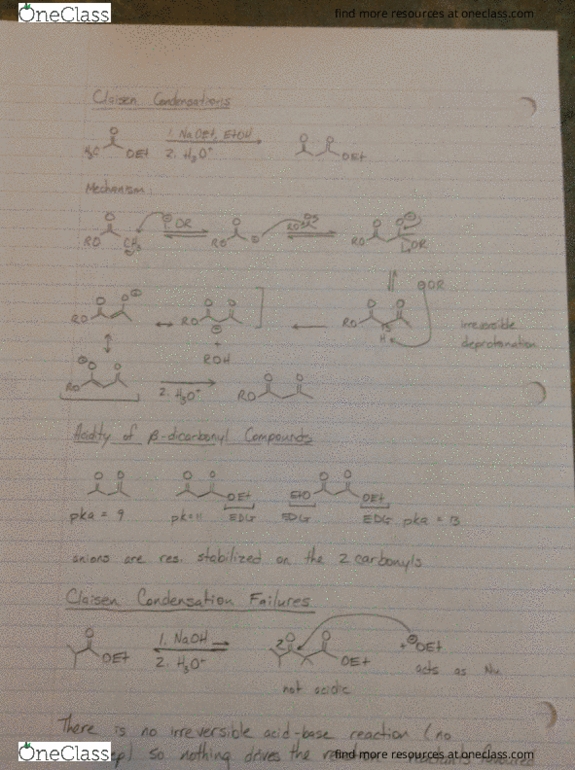 OneClass
find more resources at oneclass.com
Claisen Condensations
O
OEt
1. NaOEt, EtOH
2. H3O+
O O
OEt
Mechanism:
O
RO
CH3
⊖OR
O
RO
RO
OR
O O
RO
⊖OR
O O
RO
H
irreversible
deprotonation
O O⊖
RO
↔
O O
RO
⊖
+
ROH
⊖O O
RO
2. H3O+
O O
RO
Acidity of β-dicarbonyl Compounds
O O
O O
OEt
EtO
O O
OEt
pka = 9
pk=11
EDG
EDG
EDG pka = 13
anions are res. stabilized on the 2 carbonyls
Claisen Condensation Failures
O
OEt
1. NaOH
2. H3O+
O O
OEt
+ ⊖OEt
acts as Nu
not acidic
There is no irreversible acid-base reaction (no
so nothing drives the
OneClass
find more resources at oneclass.com